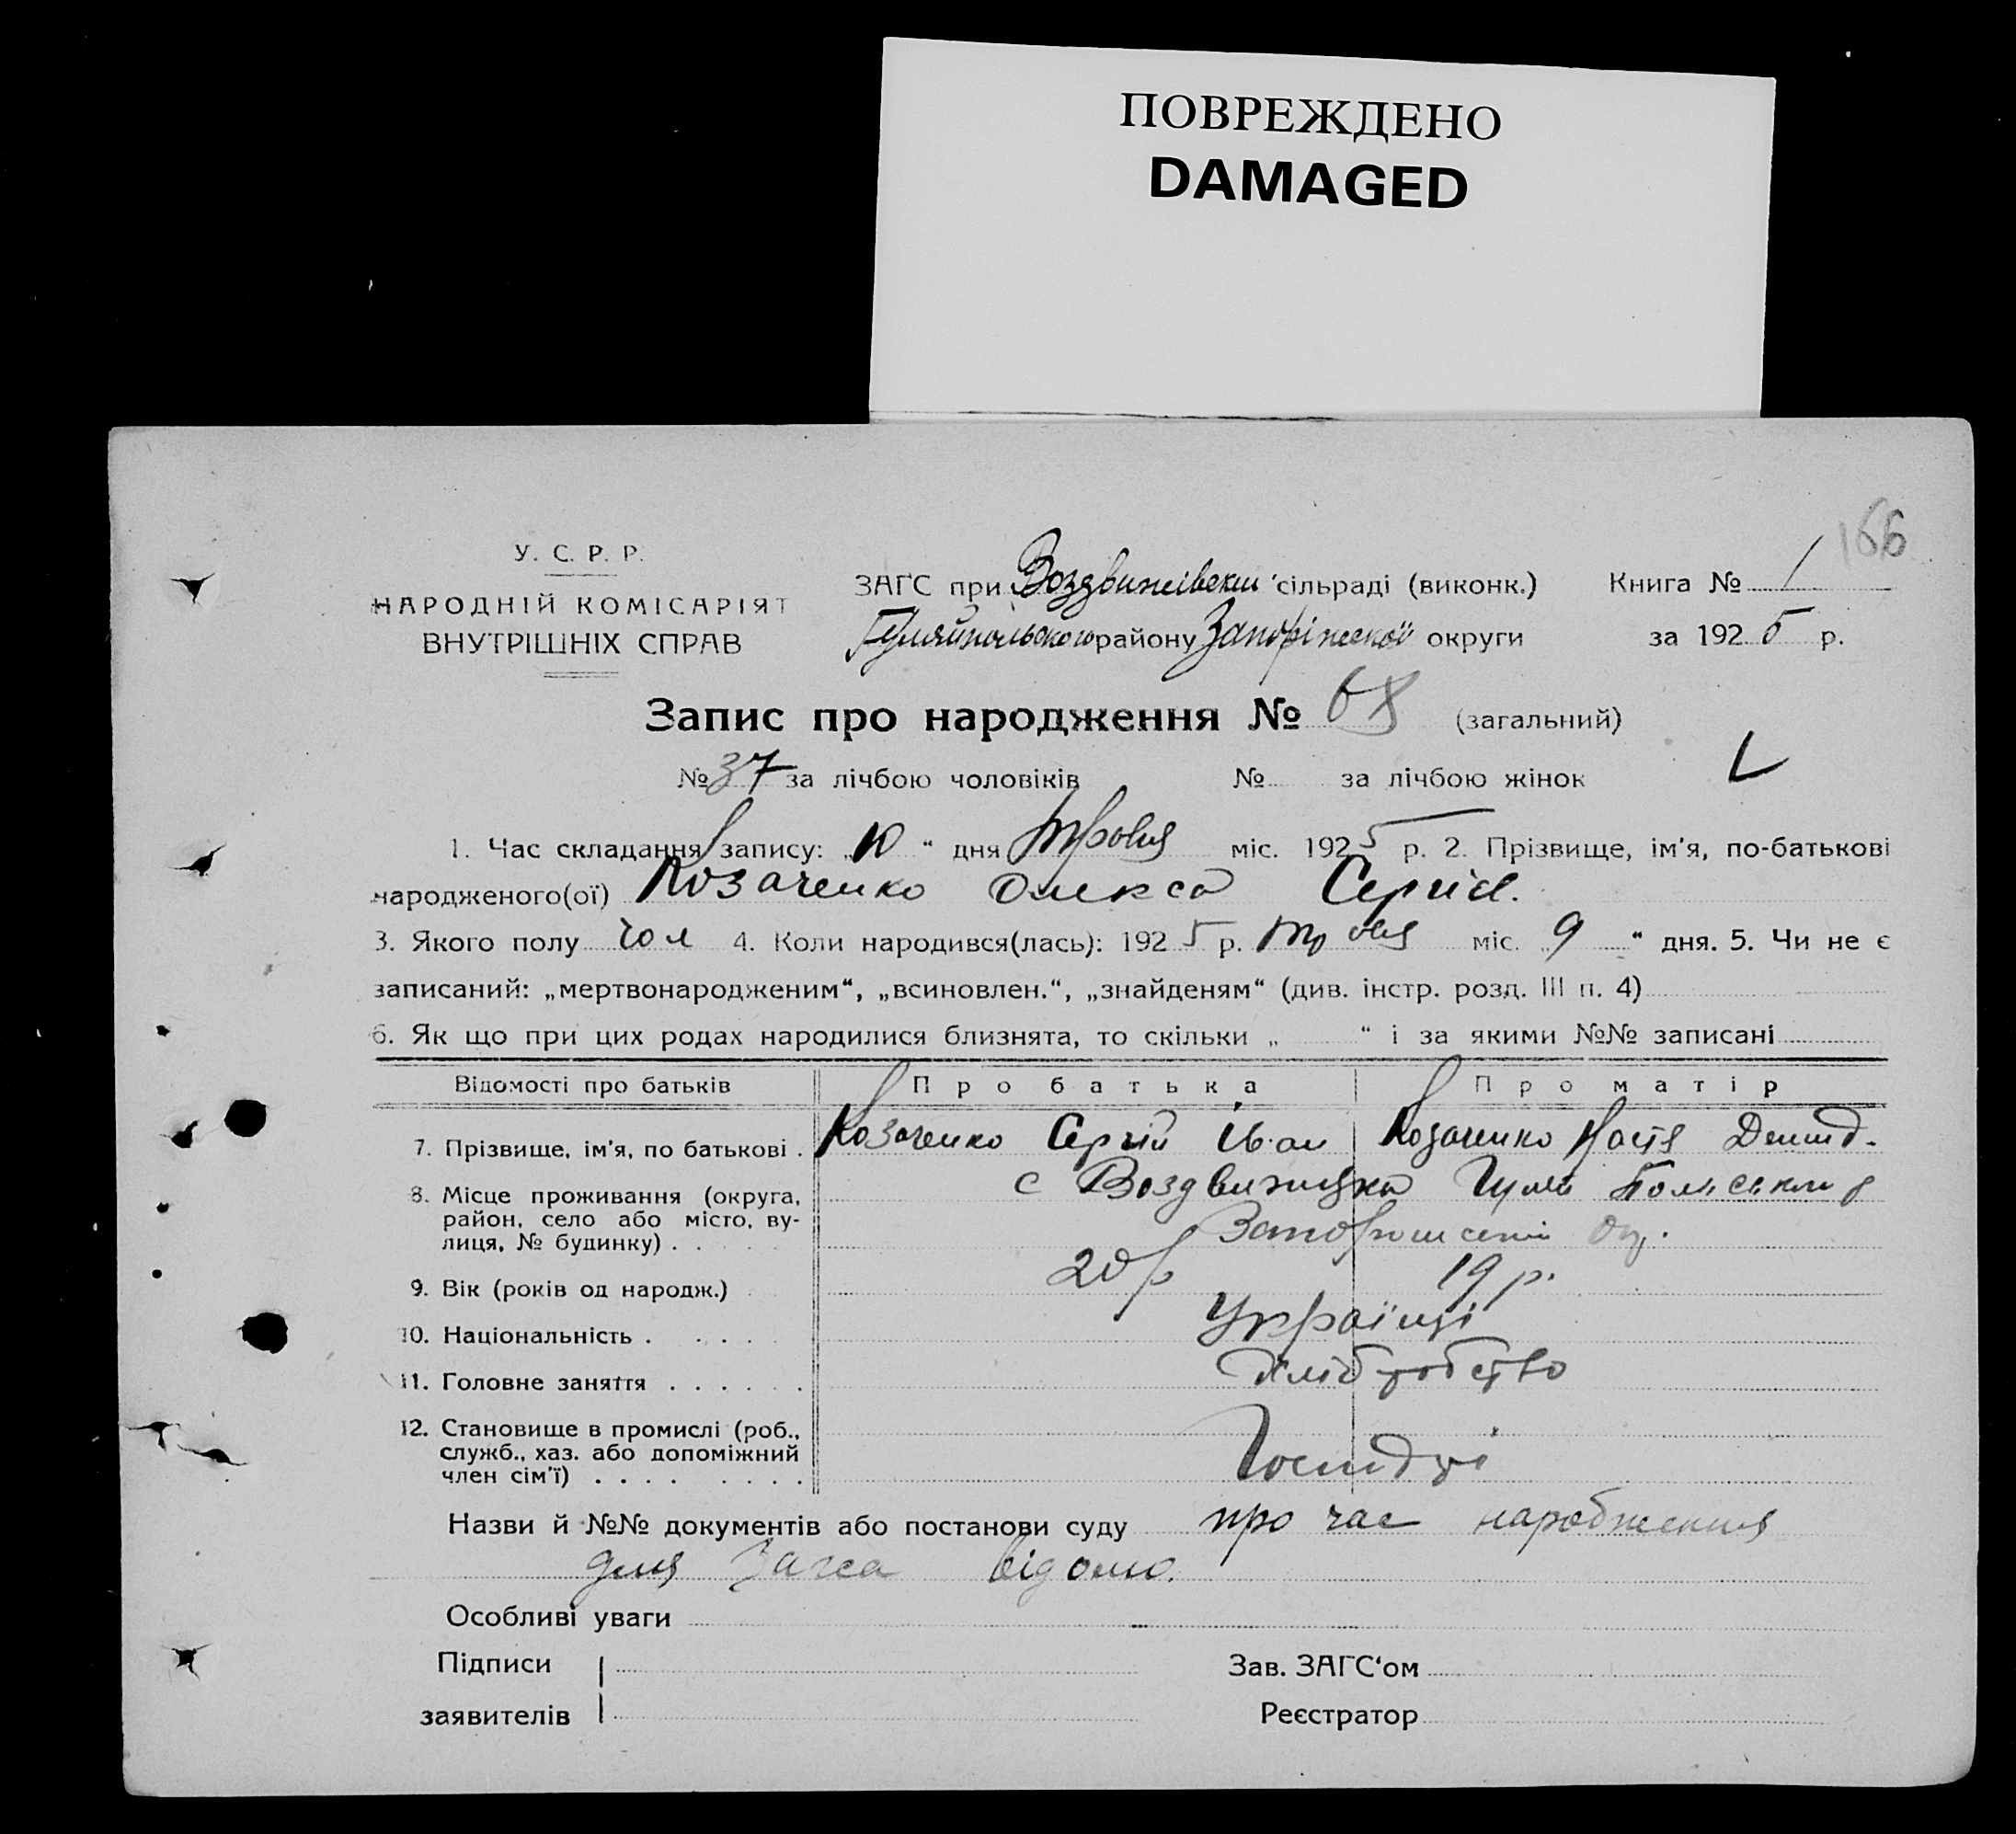 ПОВРЕЖДЕНО
DAMAGED
166
У. С. Р. Р.
НАРОДНІЙ КОМІСАРІЯТ
ВНУТРІШНІХ СПРАВ
ЗАГС при Воздвижівский сільраді (виконк.) Книга № 1
Гуляйпольського району Запоріжської округи за 1925 р.
Запис про народження № 68 (загальний)
№ 37 за лічбою чоловіків № за лічбою жінок
1. Час складання запису: „10“ дня травня міс. 1925 р. 2. Прізвище, ім'я, по-батькові
народженого(ої) Козаченко Олекса Сергієв.
3. Якого полу чол 4. Коли народився(лась): 1925 р. травня міс. „9“ дня. 5. Чи не є
записаний: „мертвонародженим“, „всиновлен.“, „знайденям“ (див. інстр. розд. III п. 4)
6. Як що при цих родах народилися близнята, то скільки „ “ і за якими №№ записані
Відомості про батьків Про батька Про матір
7. Прізвище, ім'я, по батькові . Козаченко Сергій Іван Козаченко Настя Демид.
8. Місце проживання (округа,
район, село або місто, ву-
лиця, № будинку) . . с Воздвижка Гуляй Польськ р
Запорожській ок.
9. Вік (років од народж.) 20 р 19 р.
10. Національність . . . . . Українці
11. Головне заняття . . . . . . Хліборобство
12. Становище в промислі (роб.,
служб., хаз. або допоміжний
член сім'ї) . . . . . . . .
Назви й №№ документів або постанови суду про час народження
для Загса відомо.
Особливі уваги
Підписи
заявителів
Зав. ЗАГС‘ом
Реєстратор